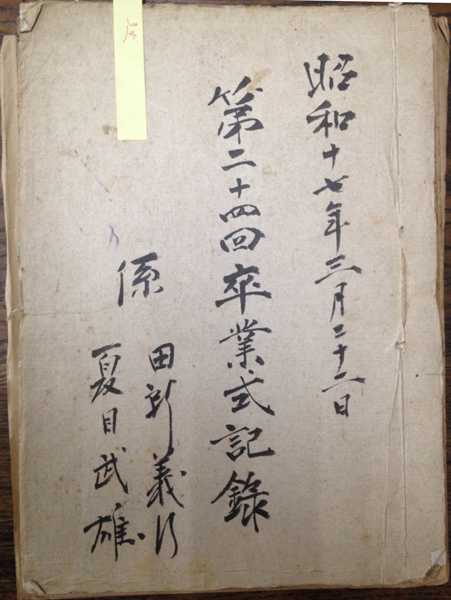 昭和十七年三月二十二日
第二十四回卒業式記録
係
田 義行
夏目武雄